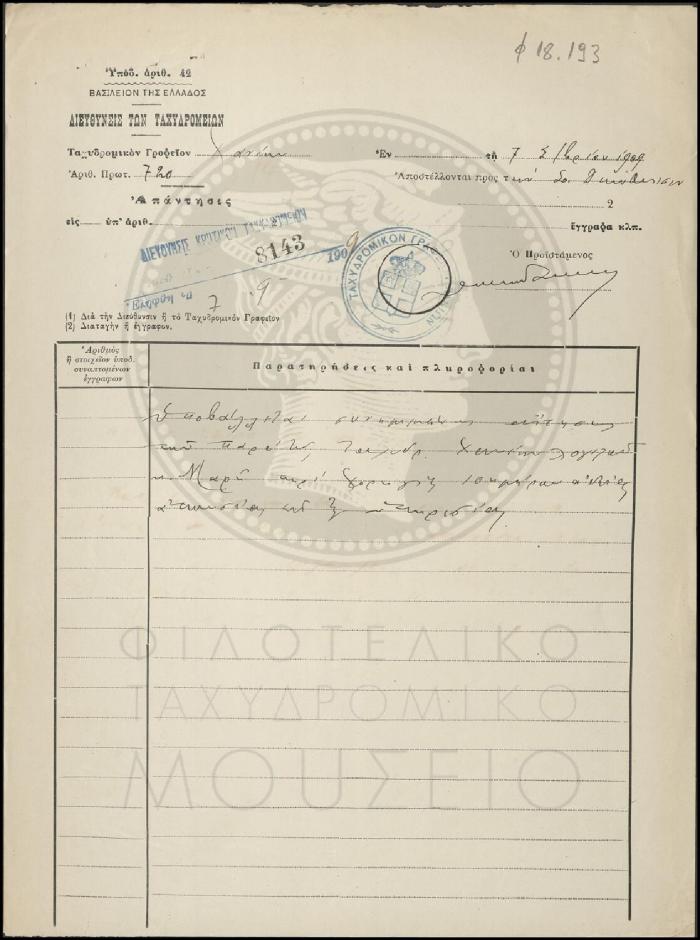 φ 18.193
Ὑπόδ. ἀριθ. 42
ΒΑΣΙΛΕΙΟΝ ΤΗΣ ΕΛΛΑΔΟΣ
ΔΙΕΥΘΥΝΣΙΣ ΤΩΝ ΤΑΧΥΔΡΟΜΕΙΩΝ
Ταχυδρομικὸν Γραφεῖον Χανίων
Ἀριθ. Πρωτ. 720
Ἀπάντησις
εἰς ὑπ' ἀριθ. 2)
Ἐν τῇ 7 1909
Ἀποστέλλονται πρὸς τ
2
ἔγγραφα κλπ.
Ὁ Προϊστάμενος
ΔΙΕΥΘΥΝΣΙΣ ΚΡΗΤΙΚΩΝ ΤΑΧΥΔΡΟΜΕΙΩΝ
8143 1909
Ἐλήφθη τῇ 7 9
ΤΑΧΥΔΡΟΜΙΚΟΝ ΓΡΑΦ
(1) Διὰ τὴν Διεύθυνσιν ἢ τὸ Ταχυδρομικὸν Γραφεῖον
(2) Διαταγὴν ἢ ἔγγραφον.
Ἀριθμὸς
ἢ στοιχεῖον ὑποδ.
συναπτομένων
ἐγγραφων
Παρατηρήσεις καὶ πληροφορίαι
Ὑποβάλλεται συνημμένως αἴτησις
τοῦ παρ'
Μαρῆ περὶ χορηγήσ
ἀπουσίας ἐκ τῆς ὑπηρεσίας
ΦΙΛΟΤΕΛΙΚΟ
ΤΑΧΥΔΡΟΜΙΚΟ
ΜΟΥΣΕΙΟ